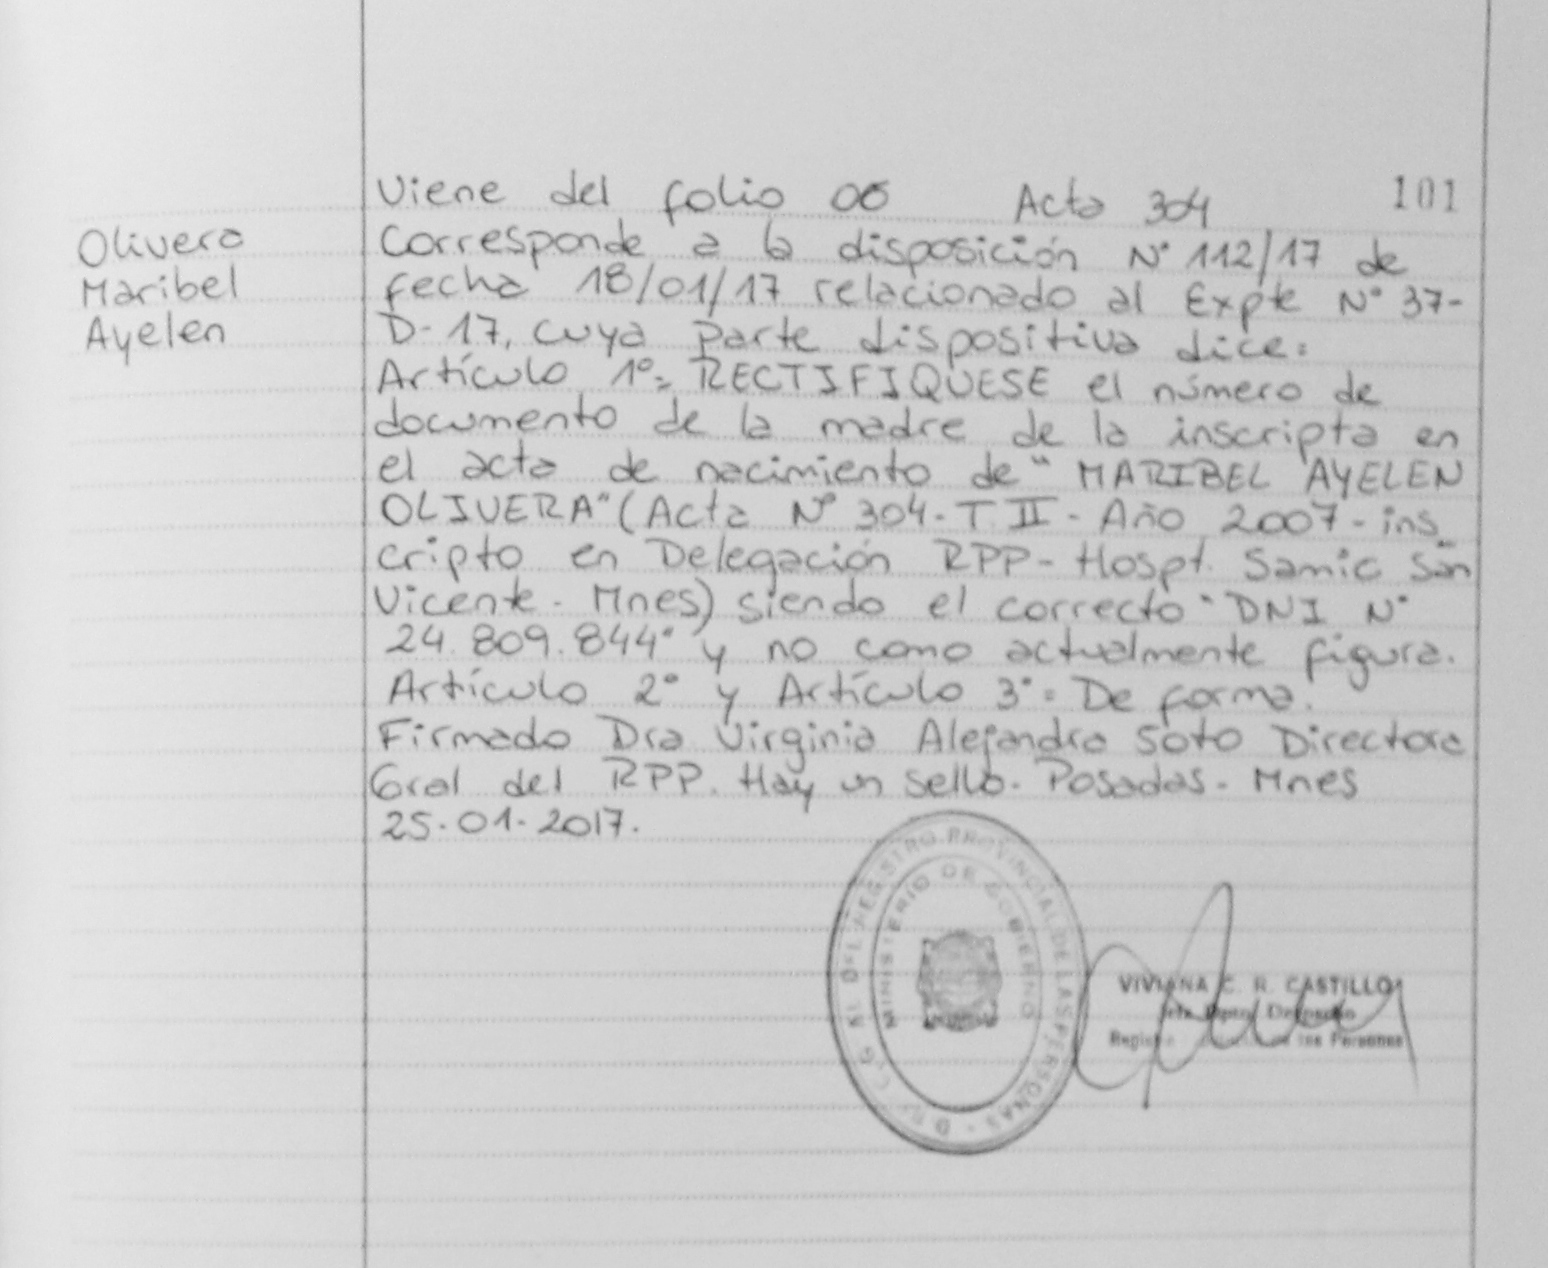 Viene del folio 06 Acta 304 101
Olivera
Maribel
Ayelen
Corresponde a la disposición N° 112/17 de
fecha 18/01/17 relacionado al Expte N° 37-
D-17, cuya parte dispositiva dice:
Artículo 1º= RECTIFIQUESE el número de
documento de la madre de la inscripta en
el acta de nacimiento de "MARIBEL AYELEN
OLIVERA" (Acta Nº 304-T II- Año 2007-ins_
cripto en Delegación RPP-Hospt. Samic San
Vicente- Mnes) siendo el correcto "DNI N°
24.809.844" y no como actualmente figura.
Artículo 2° y Artículo 3°= De forma.
Firmado Dra Virginia Alejandra Soto Directora
Gral del RPP. Hay un sello. Posadas- Mnes
25-01-2017.
REGISTRO PROVINCIAL DE LAS PERSONAS
MINISTERIO DE GOBIERNO
VIVIANA C. R. CASTILLO
Personas